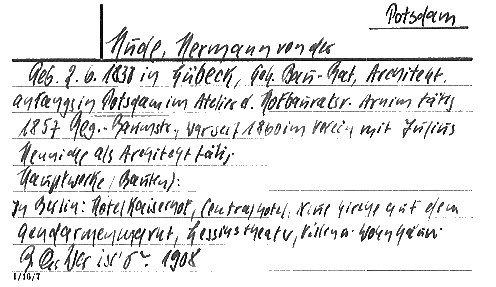 Potsdam
Hude, Hermann von der
Geb. 2. 6. 1830 in Lübeck, Geh. Bau-Rat, Architekt.
anfangs in Potsdam im Atelier d. Hofbaurats v. Arnim tätig
1857 Reg.-Baumstr., war seit 1860 im Verein mit Julius
Hennicke als Architekt tätig.
Hauptwerke (Bauten):
In Berlin: Hotel Kaiserhof, Centralhotel, Kirche auf dem
Gendarmenmarkt, Lessingtheater, Villen u. Wohnhäuser
Wer ist's 1908
1/16/7